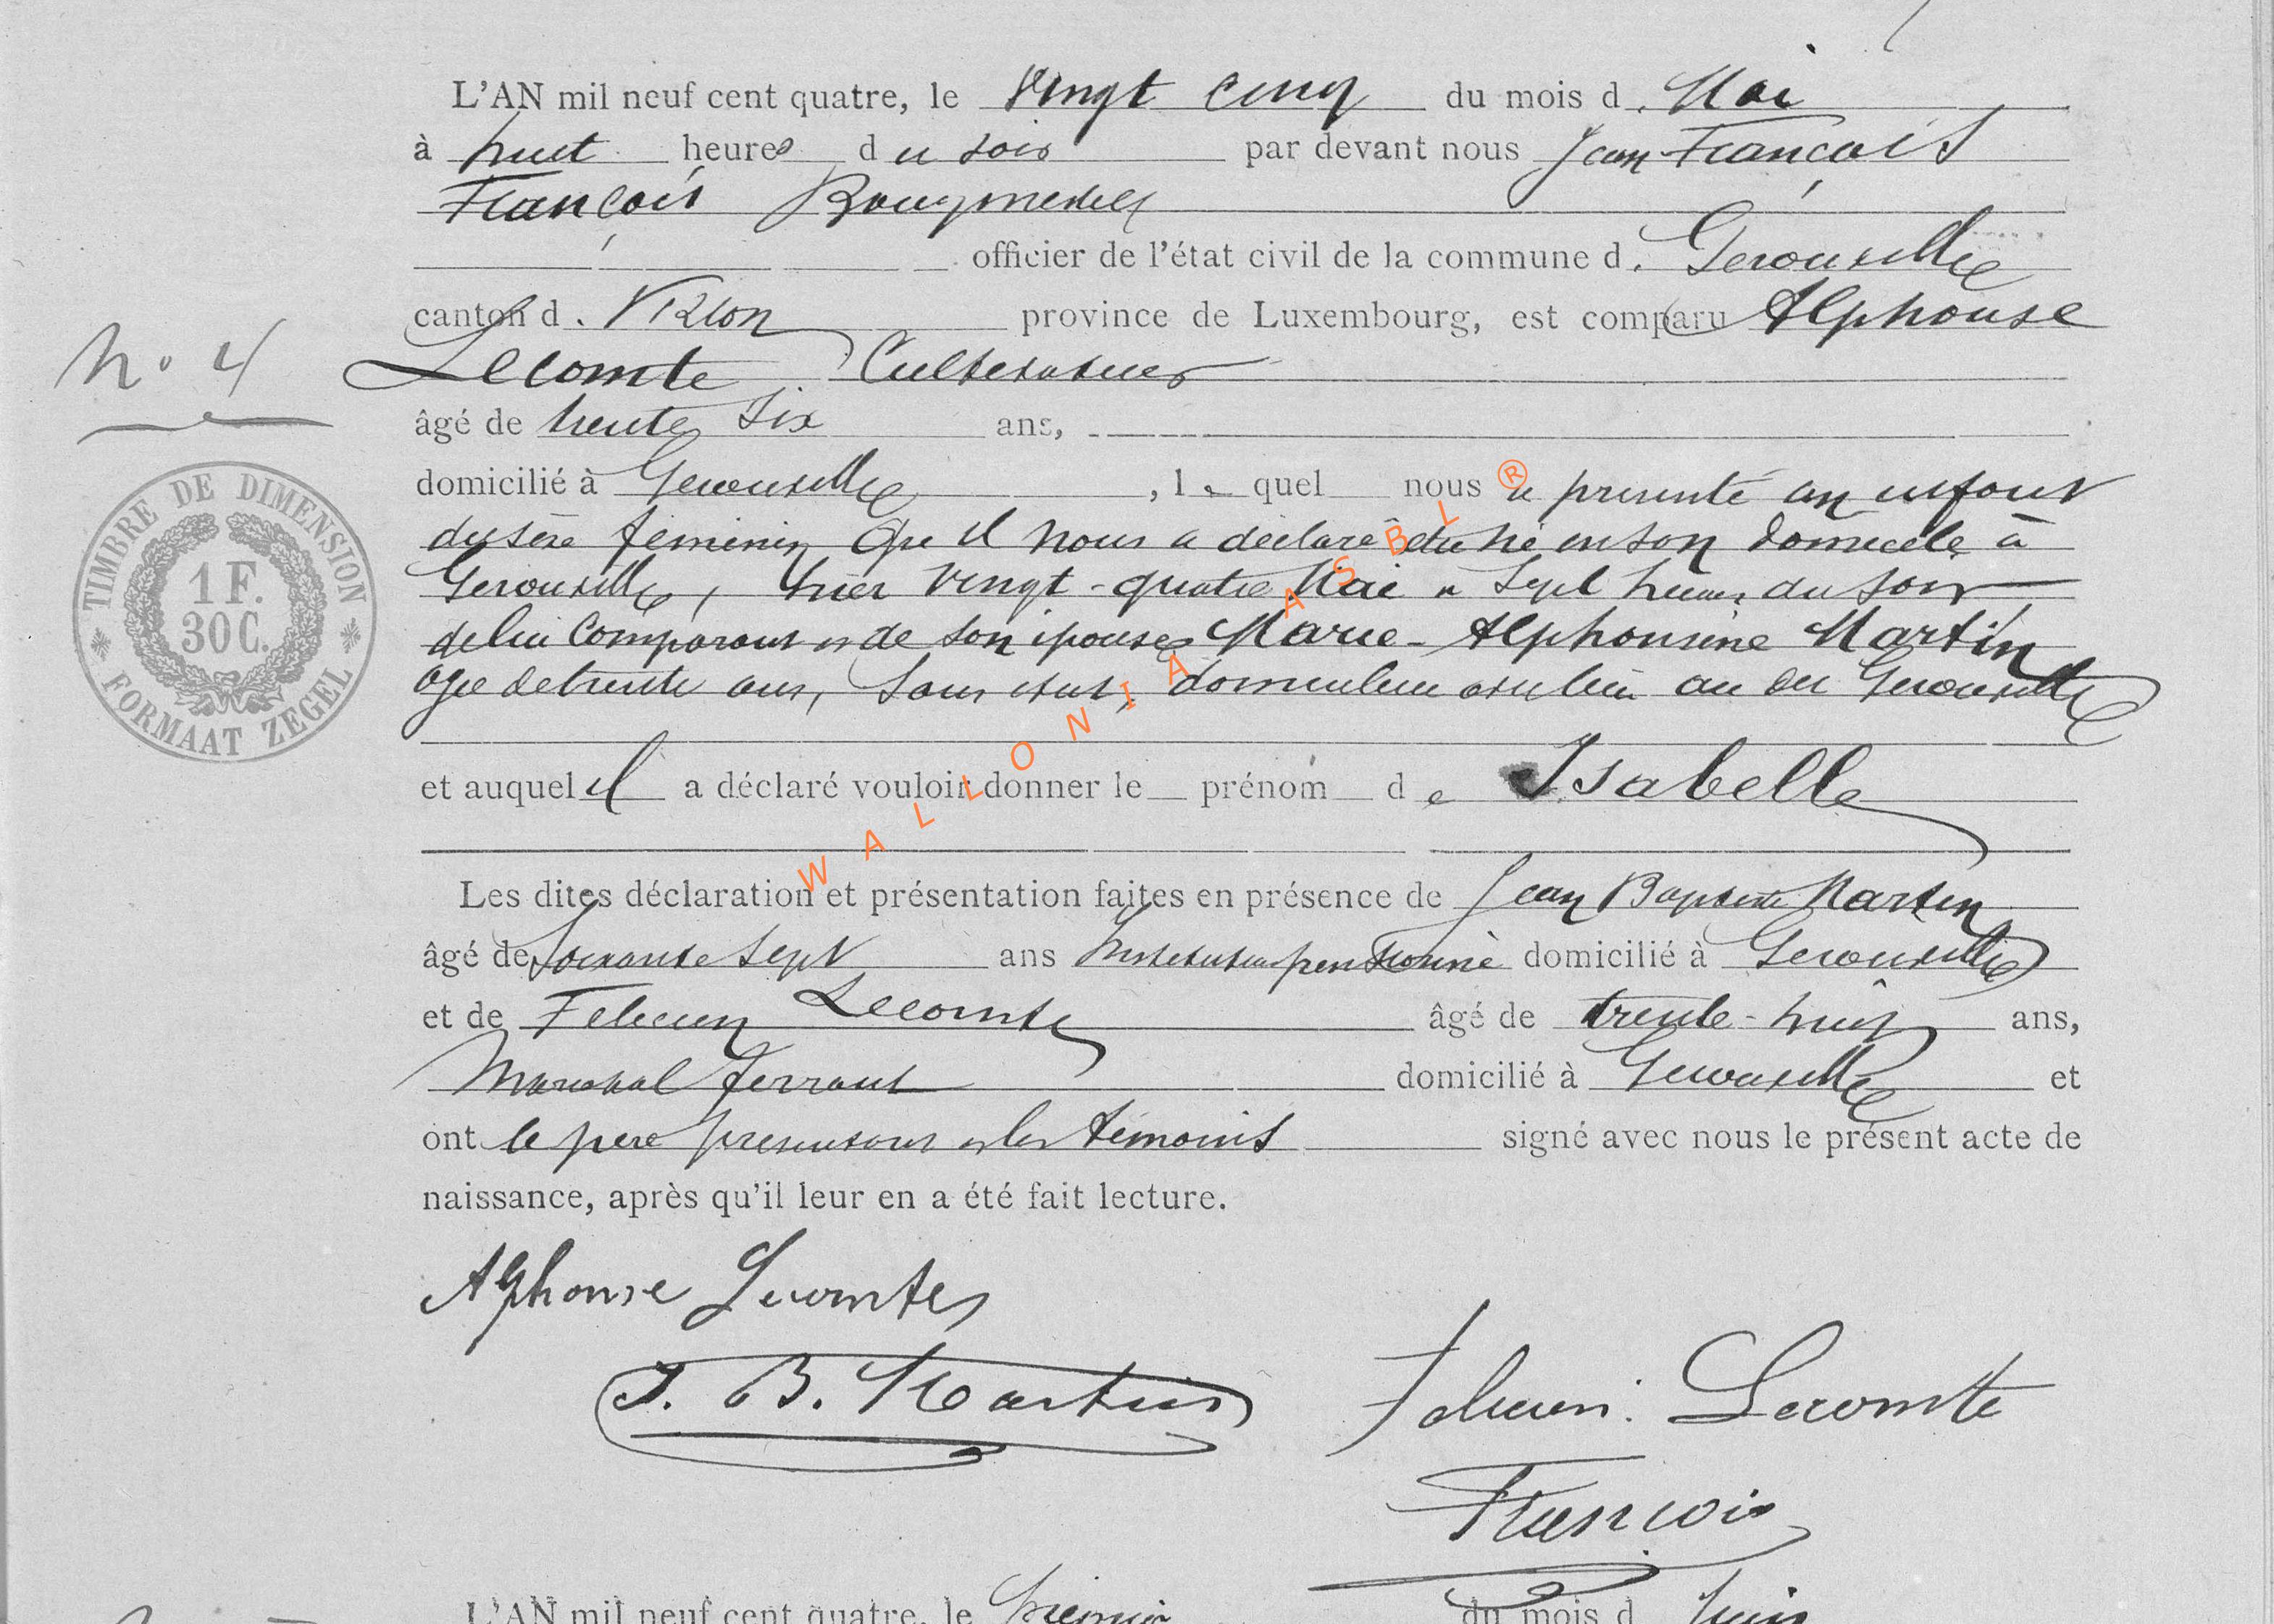 L'AN mil neuf cent quatre, le vingt cinq du mois d. Mai
à huit heures du soir par devant nous Jean François
François
officier de l'état civil de la commune d. Gerouville
canton d. Virton province de Luxembourg, est comparu Alphonse
N. 4
Lecomte, Cultivateur
âgé de trente six ans,
domicilié à Gerouville, lequel nous a presenté un enfant
du sexe feminin que il nous a déclaré être né en son domicile à
Gerouville, hier vingt-quatre Mai à sept heures du soir
de lui comparant et de son épouse Marie-Alphonsine Martin
agée de trente ans, sans état, domiciliée avec lui au dit Gerouville
et auquel il a déclaré vouloir donner le prénom de Isabelle
Les dites déclaration et présentation faites en présence de Jean Baptiste Martin
âgé de soixante sept ans Instituteur pensionné domicilié à Gerouville
et de Felicien Lecomte âgé de trente-huit ans,
Marechal ferrant domicilié à Gerouville et
ont le pere presentant et les témoins signé avec nous le présent acte de
naissance, après qu'il leur en a été fait lecture.
Alphonse Lecomte
J. B. Martin Felicien Lecomte
François
L'AN mil neuf cent quatre, le premier du mois d Juin
TIMBRE DE DIMENSION
1 F.
30 C.
FORMAAT ZEGEL
WALLONIA ASBL ®